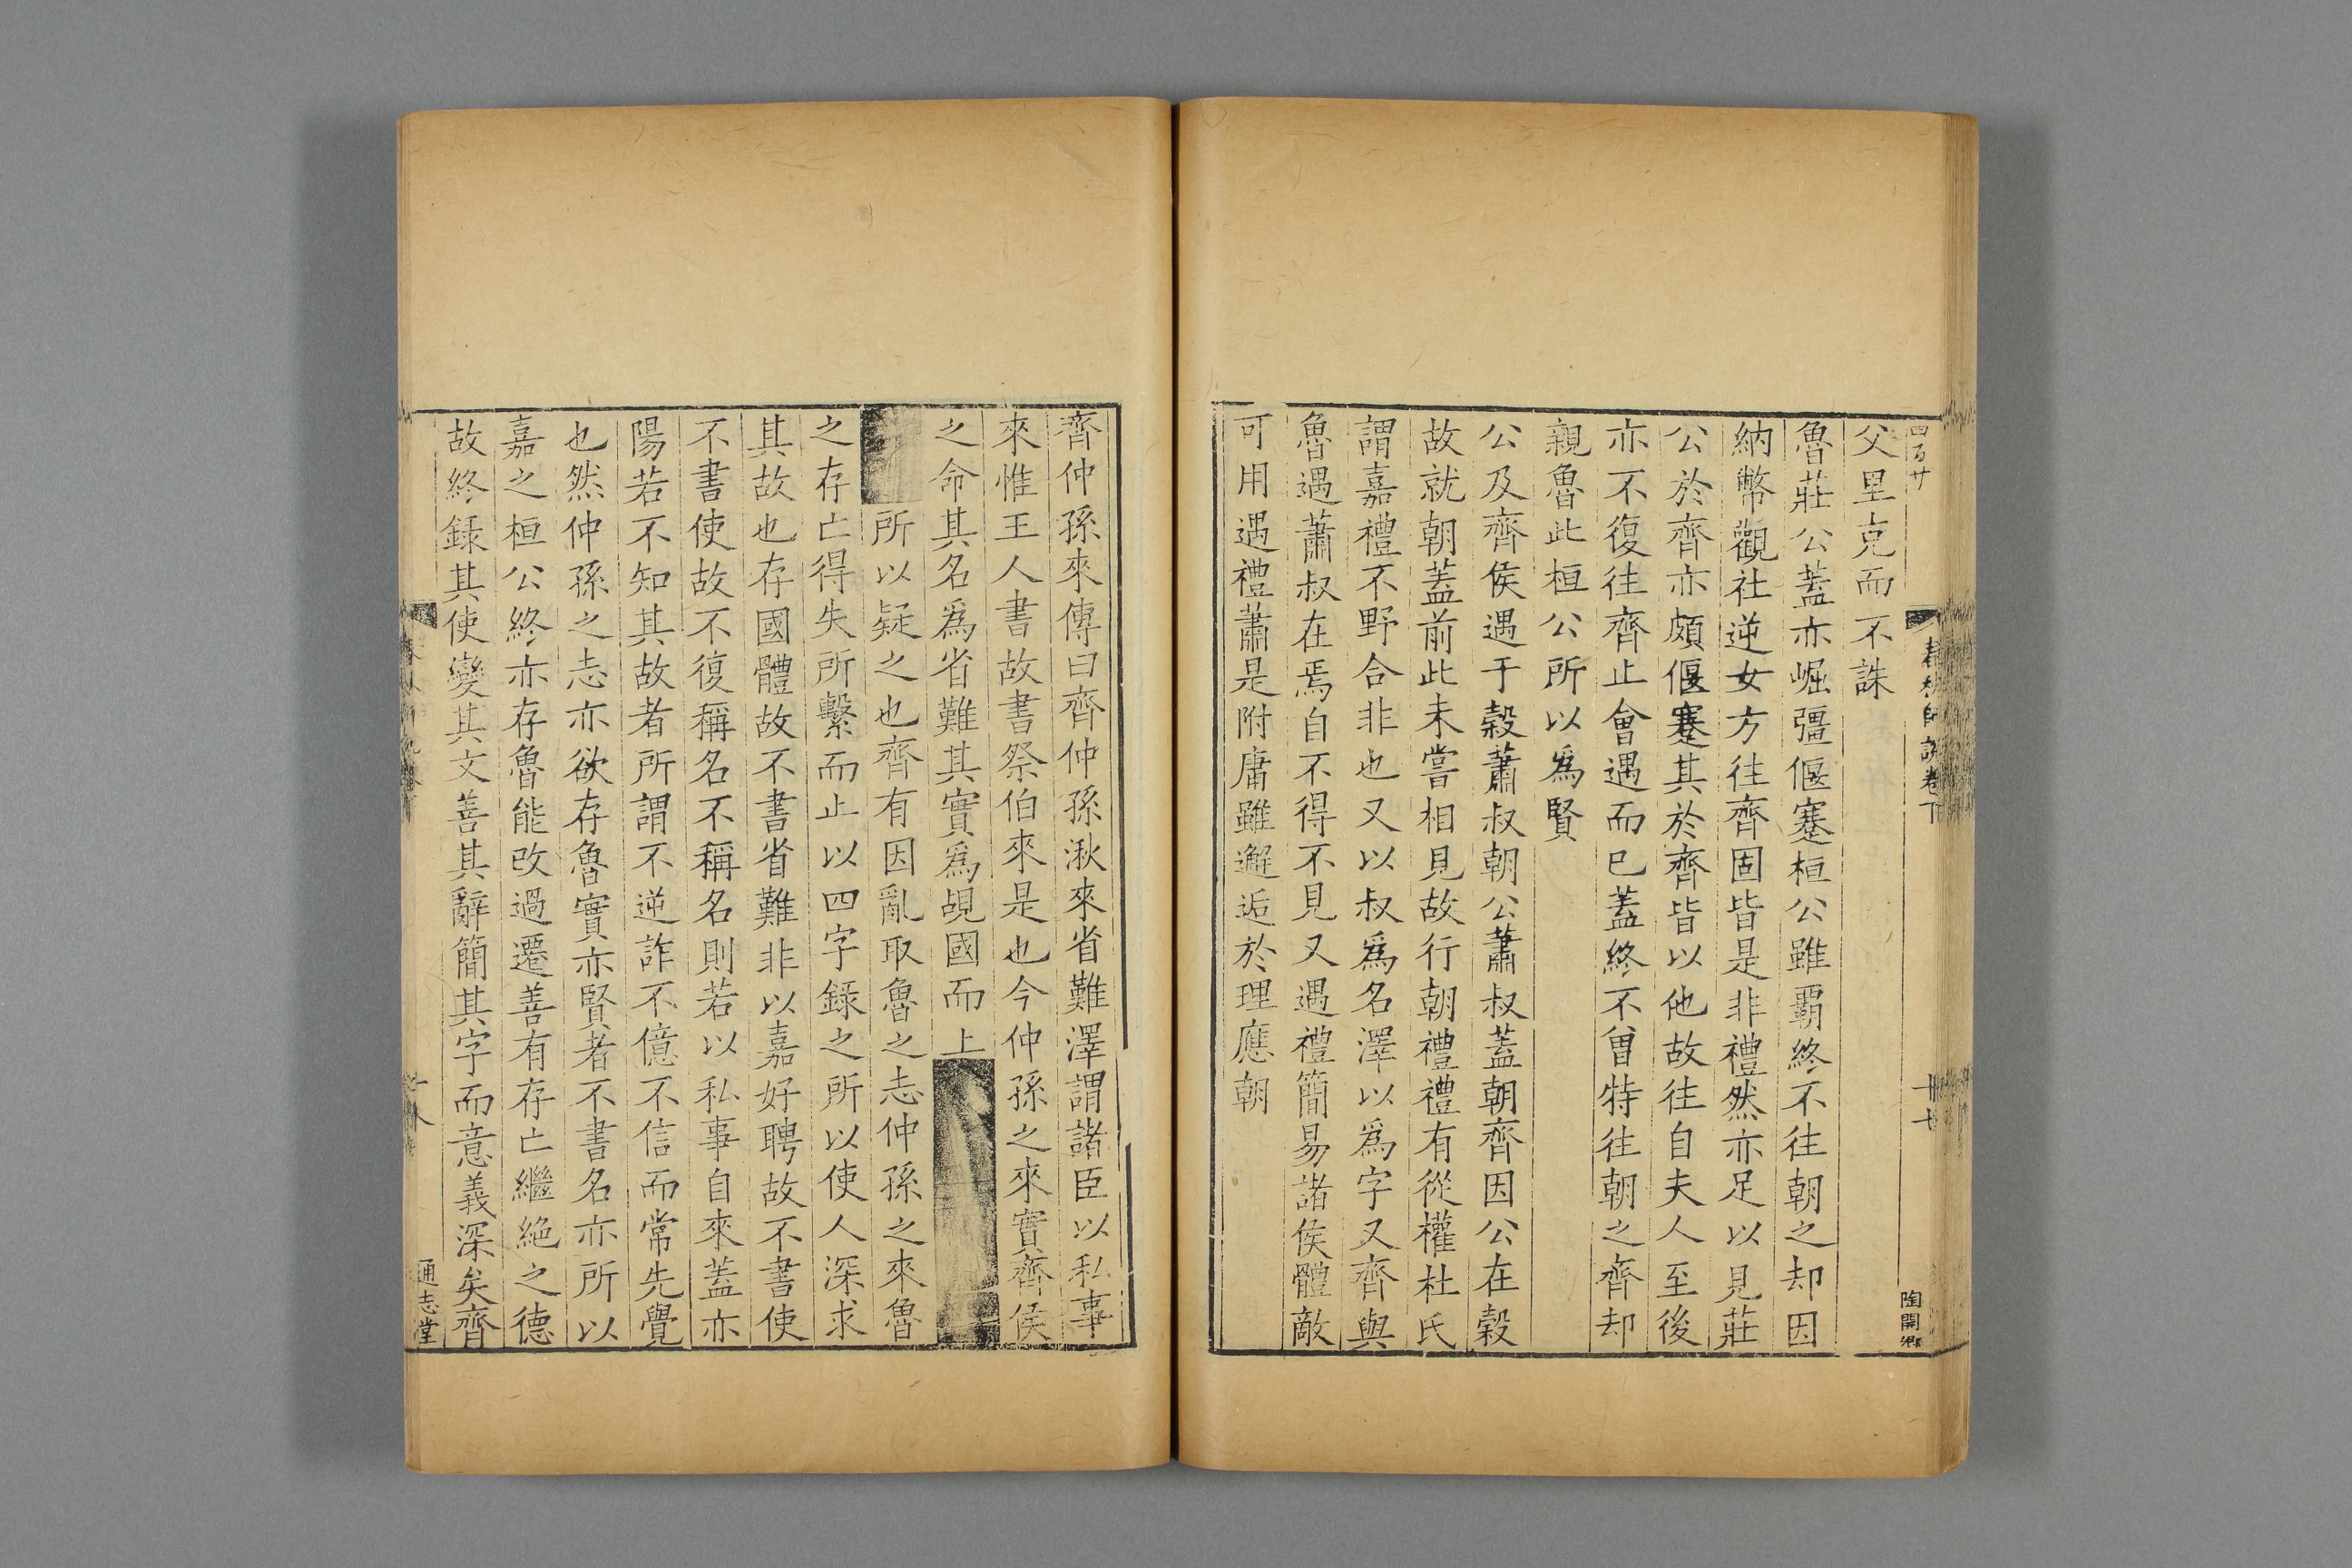 四百廿
春秋師說卷下
卅七
陶開鄉
父里克而不誅
魯莊公蓋亦崛彊偃蹇桓公雖覇終不往朝之却因
納幣觀社逆女方往齊固皆是非禮然亦足以見莊
公於齊亦頗偃蹇其於齊皆以他故往自夫人至後
亦不復往齊止會遇而已蓋終不曾特往朝之齊却
親魯此桓公所以爲賢
公及齊侯遇于榖蕭叔朝公蕭叔蓋朝齊因公在榖
故就朝蓋前此未嘗相見故行朝禮禮有從權杜氏
謂嘉禮不野合非也又以叔爲名澤以爲字又齊與
魯遇蕭叔在焉自不得不見又遇禮簡易諸侯體敵
可用遇禮蕭是附庸雖邂逅於理應朝
齊仲孫來傳曰齊仲孫湫來省難澤謂諸臣以私事
來惟王人書故書祭伯來是也今仲孫之來實齊侯
之命其名爲省難其實爲覘國而上
所以疑之也齊有因亂取魯之志仲孫之來魯
之存亡得失所繫而止以四字録之所以使人深求
其故也存國體故不書省難非以嘉好聘故不書使
不書使故不復稱名不稱名則若以私事自來蓋亦
陽若不知其故者所謂不逆詐不億不信而常先覺
也然仲孫之志亦欲存魯實亦賢者不書名亦所以
嘉之桓公終亦存魯能改過遷善有存亡繼絶之德
故終録其使變其文善其辭簡其字而意義深矣齊
通志堂